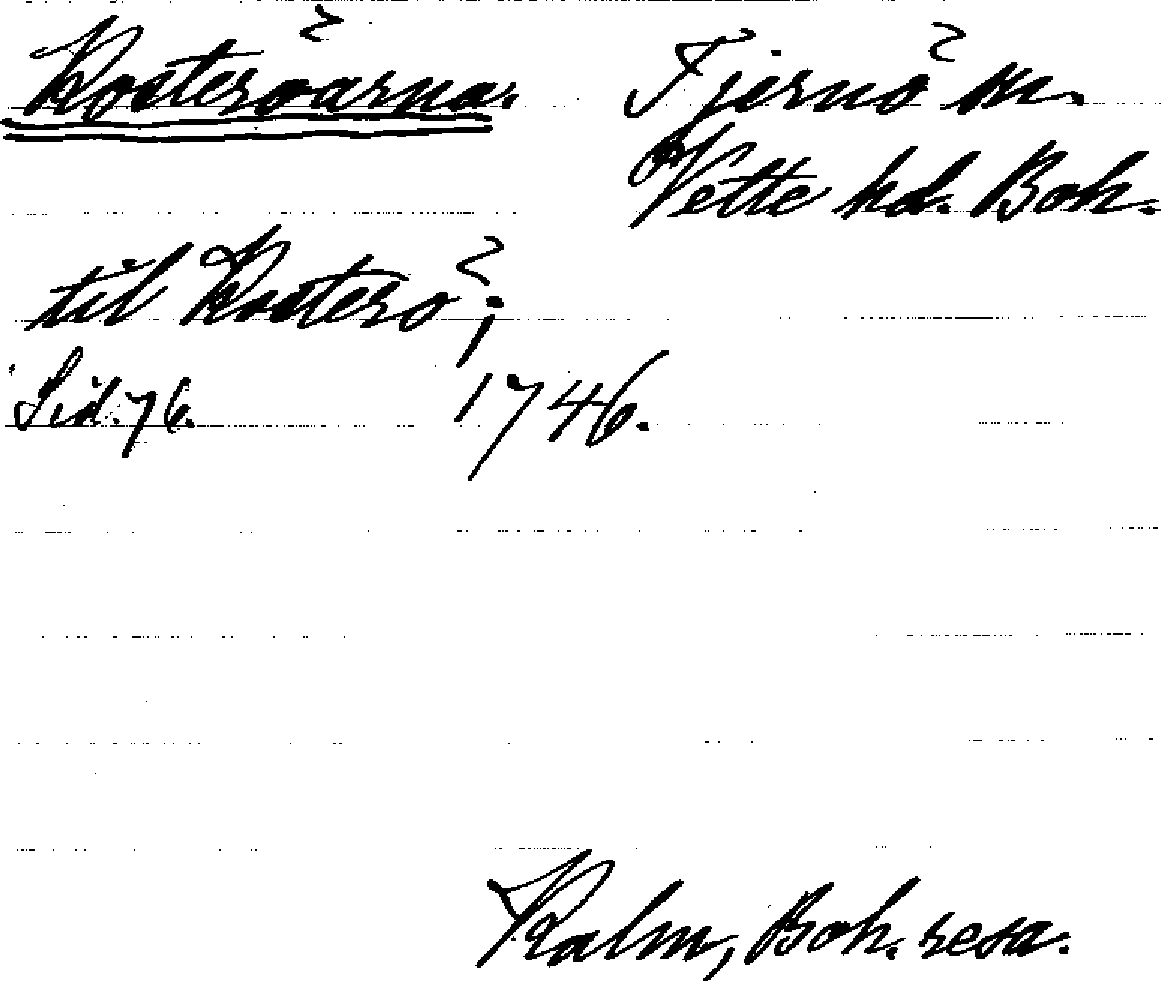 Kosteröarna. Tjernö sn.
Vette hd. Boh.
til Kosterö;
Sid. 76. 1746.
Kalm, Boh. resa.